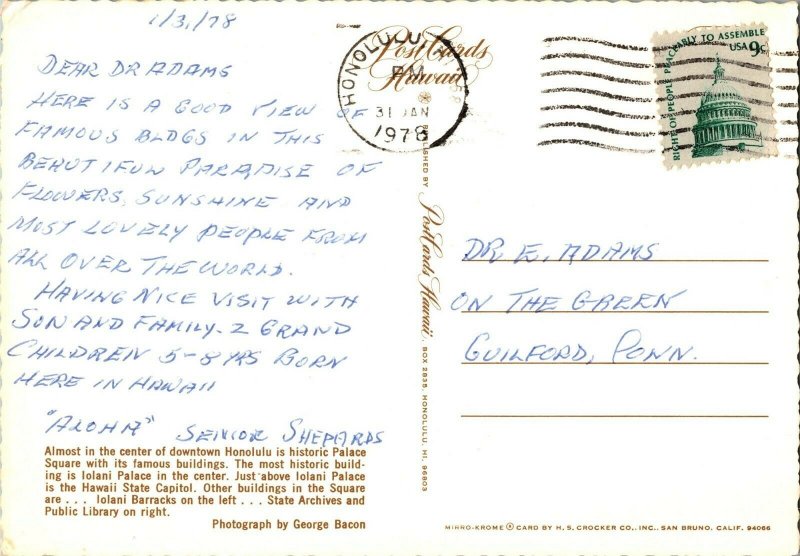 1/31/78
DEAR DR ADAMS
HERE IS A GOOD VIEW OF
FAMOUS BLDGS IN THIS
BEAUTIFUL PARADISE OF
FLOWERS, SUNSHINE AND
MOST LOVELY PEOPLE FROM
ALL OVER THE WORLD.
HAVING NICE VISIT WITH
SON AND FAMILY - 2 GRAND
CHILDREN 5-8 YRS BORN
HERE IN HAWAII
"ALOHA" SENIOR SHEPARDS
Almost in the center of downtown Honolulu is historic Palace
Square with its famous buildings. The most historic build-
ing is Iolani Palace in the center. Just above Iolani Palace
is the Hawaii State Capitol. Other buildings in the Square
are . . . Iolani Barracks on the left . . . State Archives and
Public Library on right.
Photograph by George Bacon
PostCards
Hawaii
PUBLISHED BY PostCards Hawaii, BOX 2835, HONOLULU, HI. 96803
HONOLULU, HI
PM
31 JAN
1978
RIGHT OF PEOPLE PEACEABLY TO ASSEMBLE
USA 9c
DR E. ADAMS
ON THE GREEN
GUILFORD, CONN.
MIRRO-KROME ® CARD BY H. S. CROCKER CO., INC., SAN BRUNO, CALIF. 94066